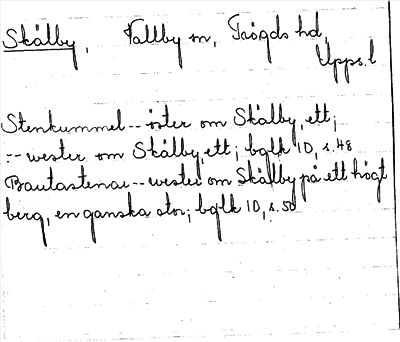 Skälby, Vallby sn, Trögds hd,
Upps. l
Stenkummel -- öster om Skälby, ett;
-- wester om Skälby, ett; bqlk 10, s. 48
Bautastenar -- wester om Skälby på ett högt
berg, en ganska stor; bqlk 10, s. 50